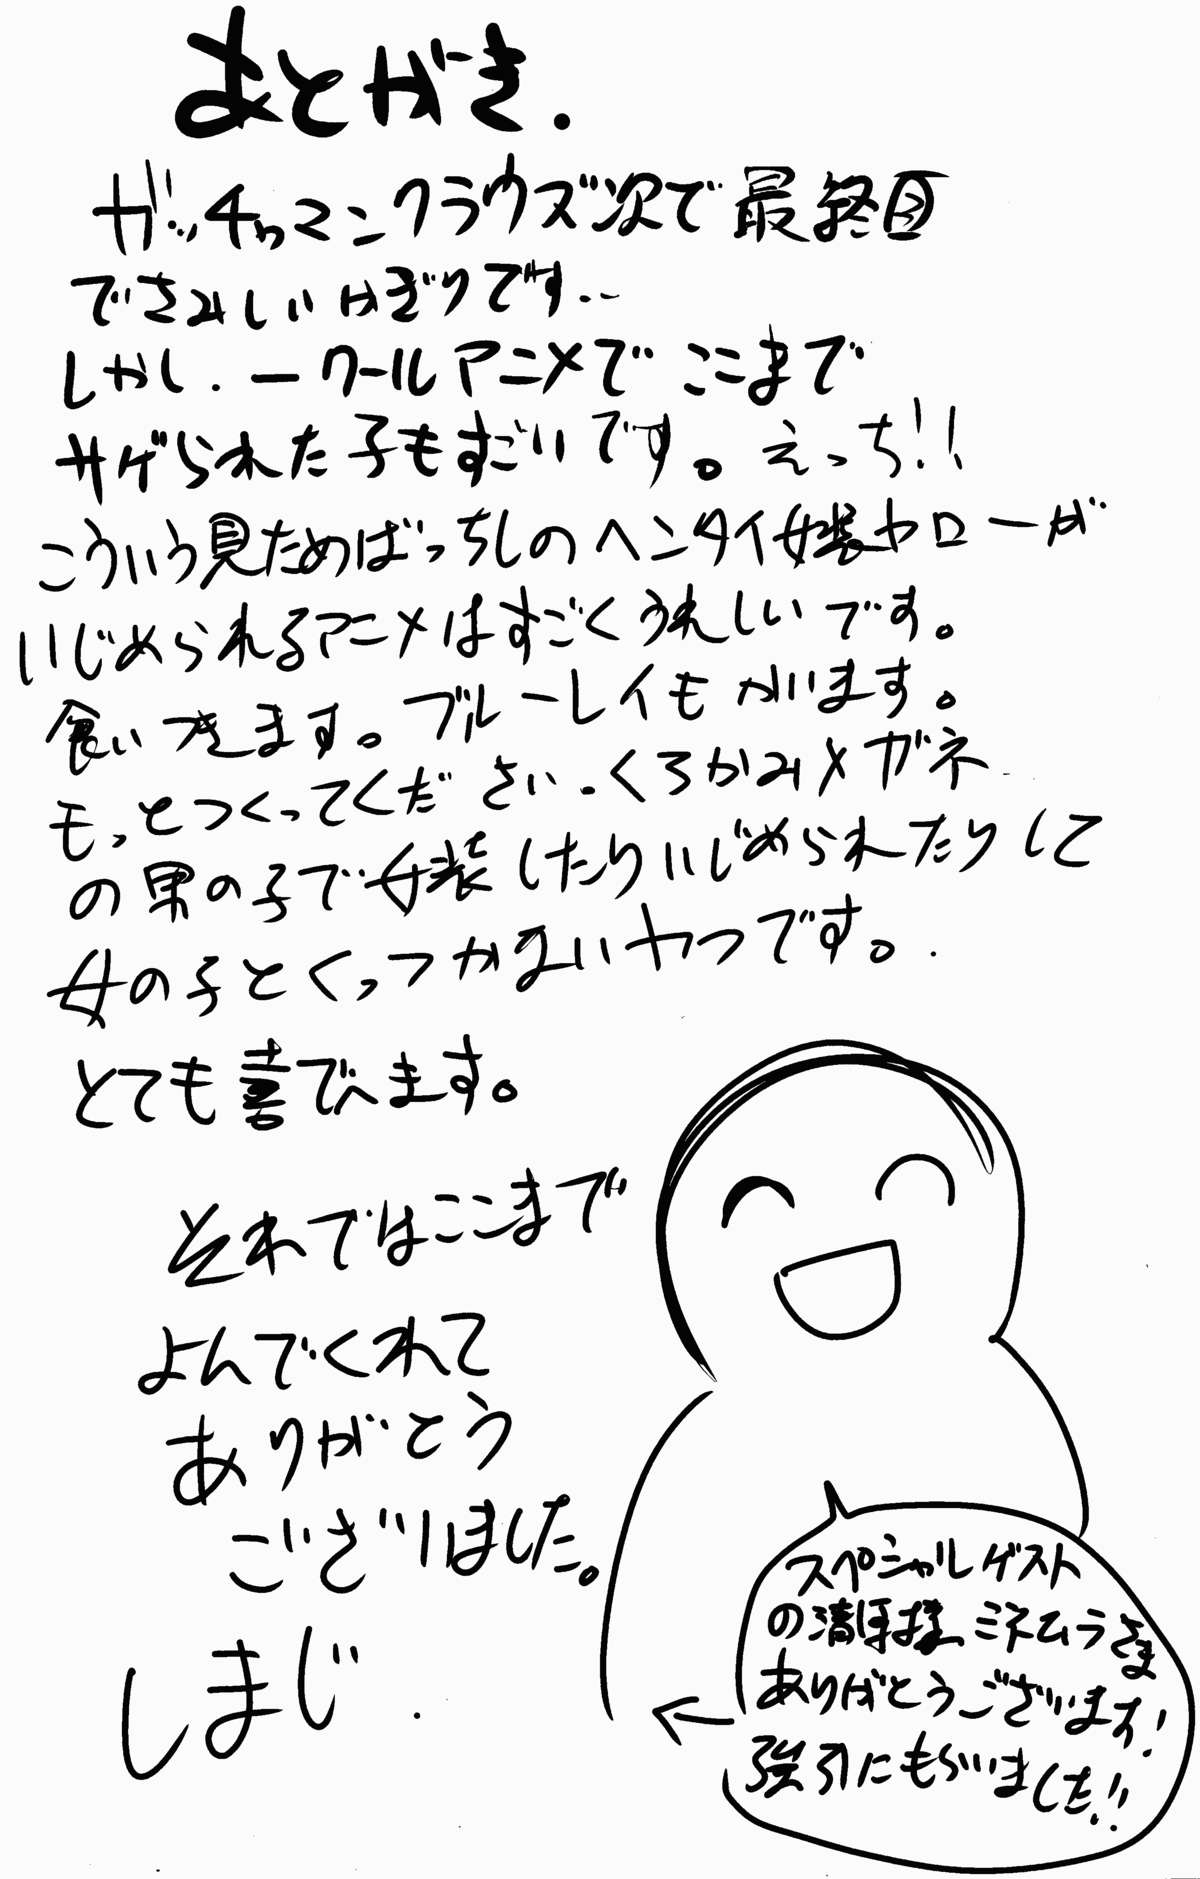 あとがき.
ガッチャマンクラウズ次で最終回
でさみしいかぎりです…
しかし.一クールアニメでここまで
サゲられた子もすごいです。えっち!!
こういう見ためばっちしのヘンタイ女装ヤローが
いじめられるアニメはすごくうれしいです。
食いつきます。ブルーレイもかいます。
もっとつくってください.くろかみメガネ
の男の子で女装したりいじめられたりして
女の子とくっつかないヤツです。.
とても喜でへます。
それではここまで
よんでくれて
ありがとう
ございました。
しまじ.
スペシャルゲスト
の清ほ様、ミネムラさま
ありがとうございます!
強引にもらいました!!